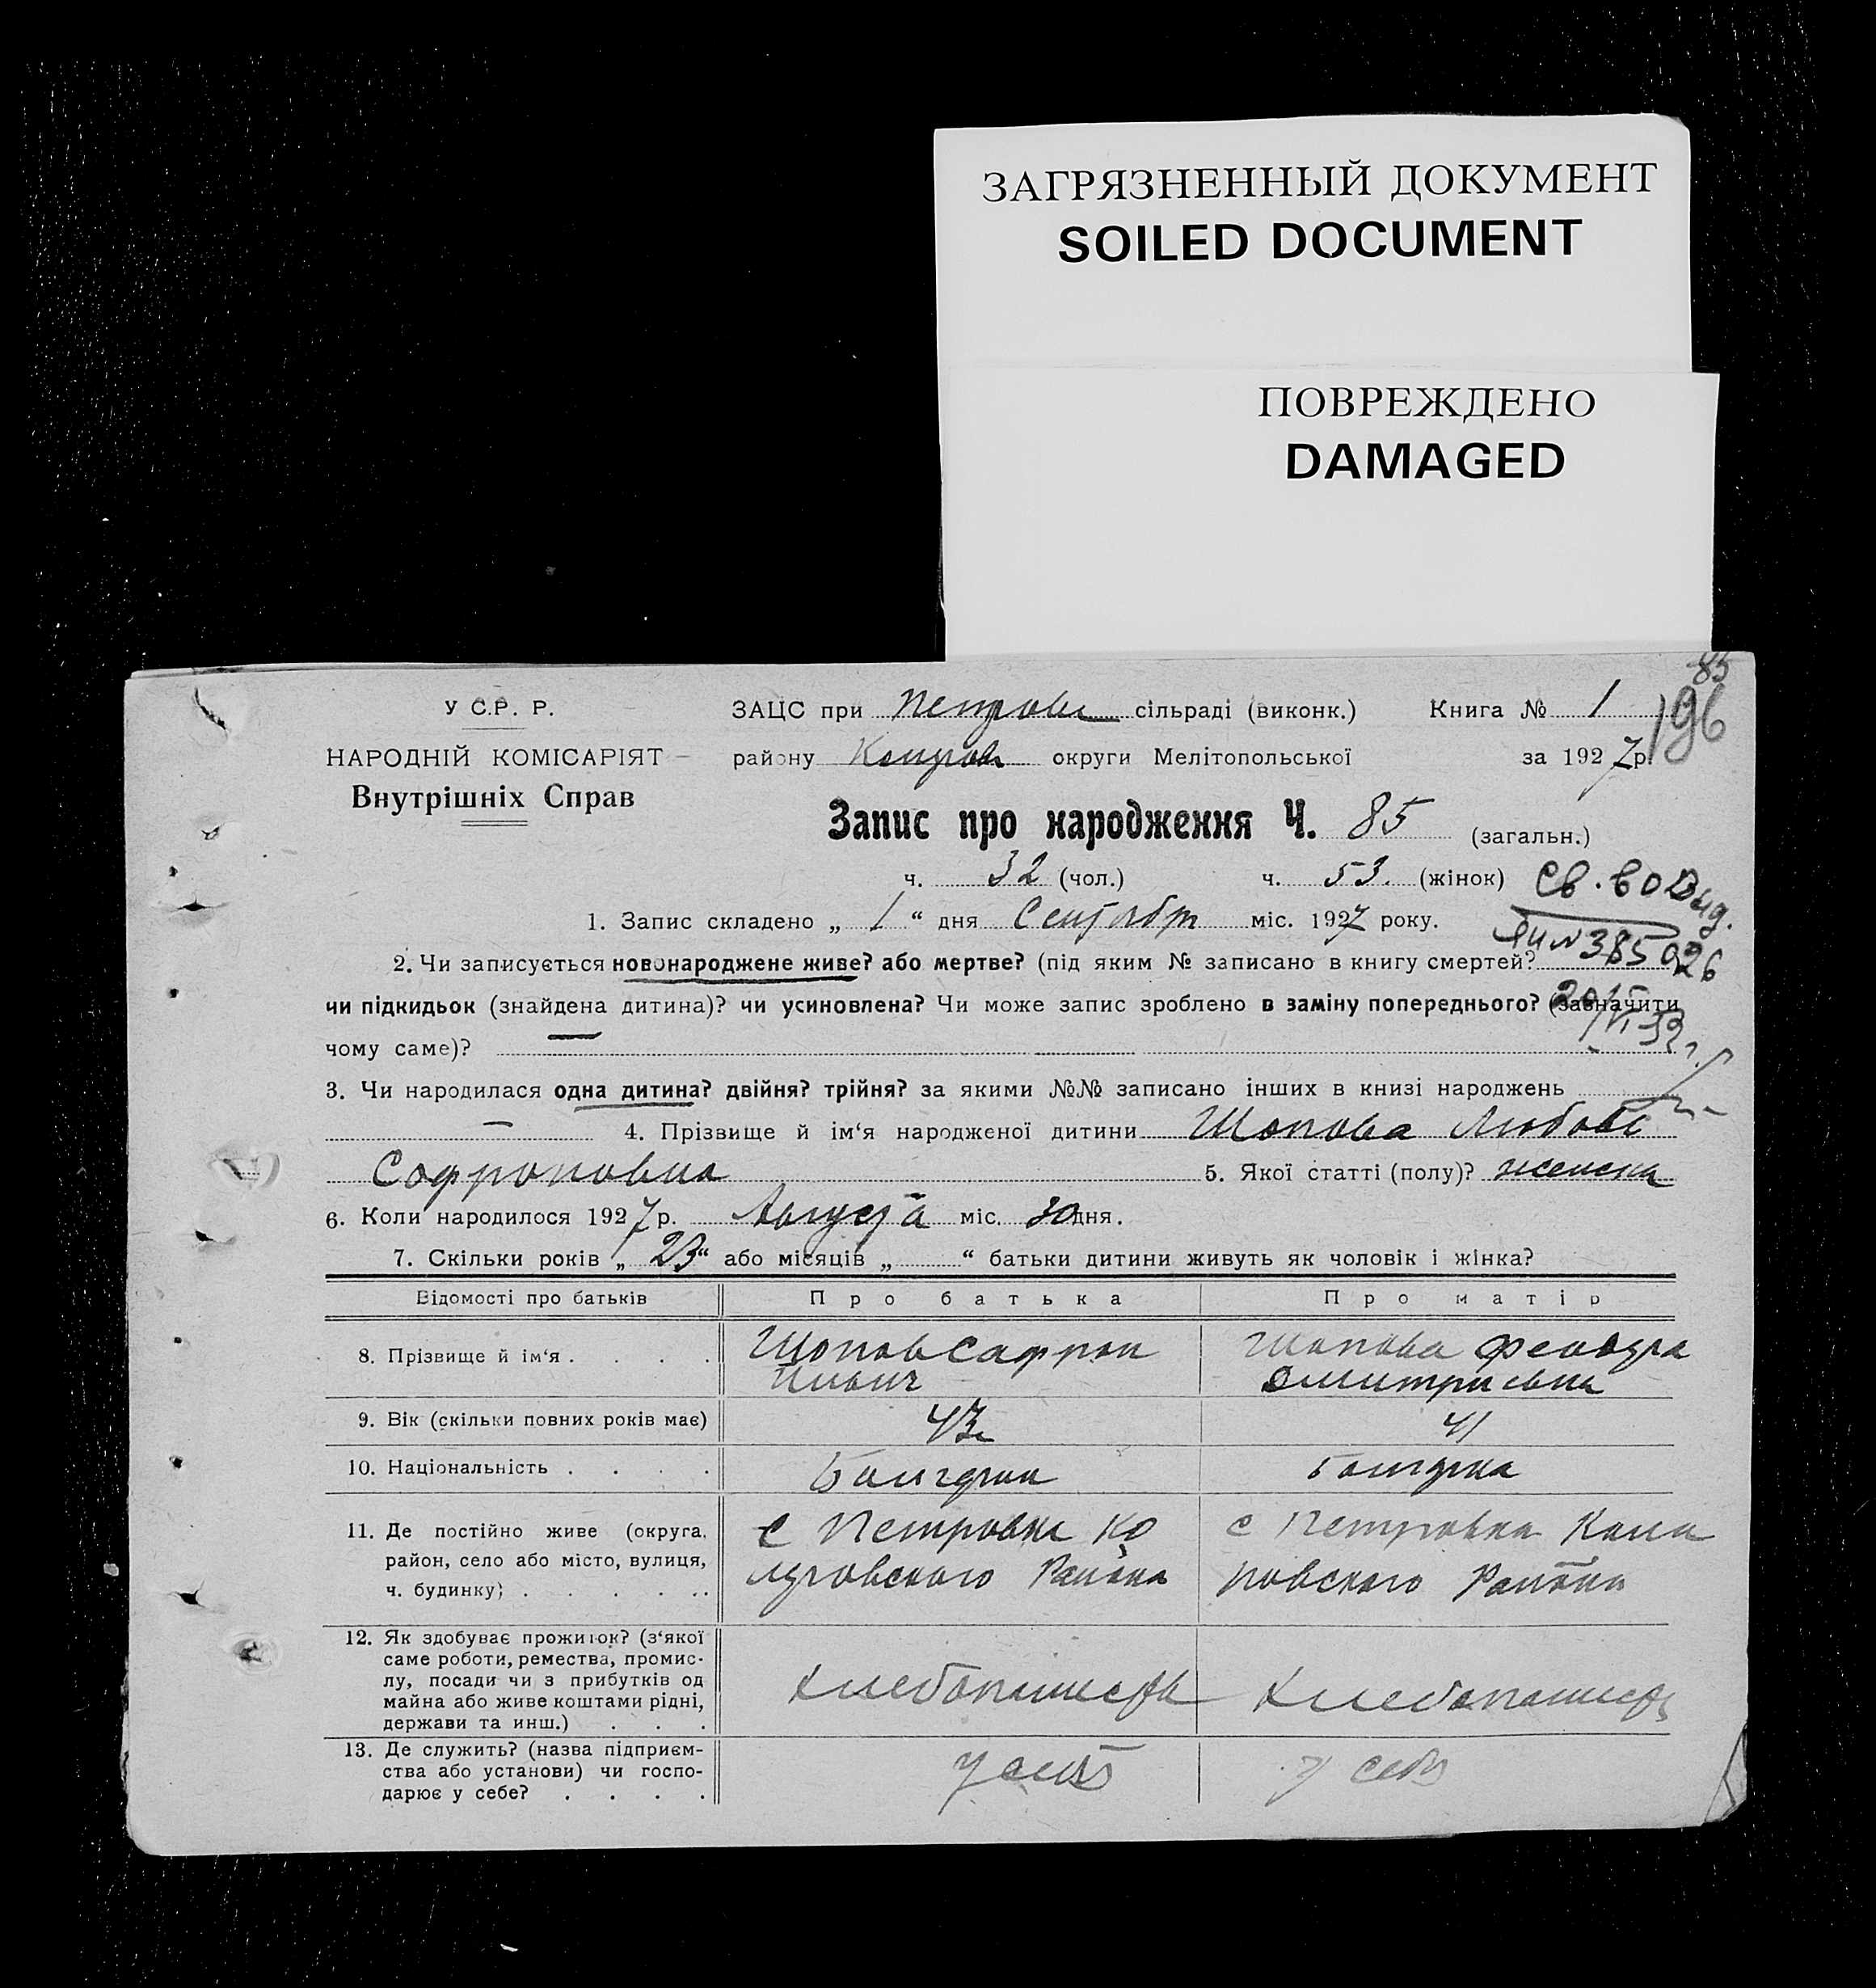 ЗАГРЯЗНЕННЫЙ ДОКУМЕНТ
SOILED DOCUMENT
ПОВРЕЖДЕНО
DAMAGED
85
196
У С.Р. Р.
ЗАЦС при Петровк сільраді (виконк.) Книга № 1
НАРОДНІЙ КОМІСАРІЯТ
району округи Мелітопольської за 1927 р.
Внутрішніх Справ
Запис про народження Ч. 85 (загальн.)
ч. 32 (чол.) ч. 53. (жінок)
Св. во выд.
1. Запис складено „ 1 “ дня Сентябр міс. 1927 року.
№ 385026
2. Чи записується новонароджене живе? або мертве? (під яким № записано в книгу смертей?
чи підкидьок (знайдена дитина)? чи усиновлена? Чи може запис зроблено в заміну попереднього? (зазначити
чому саме)?
3. Чи народилася одна дитина? двійня? трійня? за якими №№ записано інших в книзі народжень
— 4. Прізвище й ім‘я народженої дитини Шопова Любовь
Софроновна 5. Якої статті (полу)? женска
6. Коли народилося 1927 р. Августа міс. 30 дня.
7. Скільки років „ 23 “ або місяців „ “ батьки дитини живуть як чоловік і жінка?
Відомості про батьків Про батька Про матір
8. Прізвище й ім‘я . . . . Шопов Сафрон Шопова Феодора
Дмитриевна
9. Вік (скільки повних років має) 43 41
10. Національність . . . . Болгарин Болгарка
11. Де постійно живе (округа, район, село або місто, вулиця, ч. будинку) . . . . .
с Петровка Ко
ларовского Района
с Петровка Кола
ровского Района
12. Як здобуває прожиток? (з‘якої
саме роботи, ремества, промис-
лу, посади чи з прибутків од
майна або живе коштами рідні,
держави та инш.) . . .
Хлебопашеств Хлебопашеств
13. Де служить? (назва підприєм-
ства або установи) чи госпо-
дарює у себе? . . . .
у себя у себя